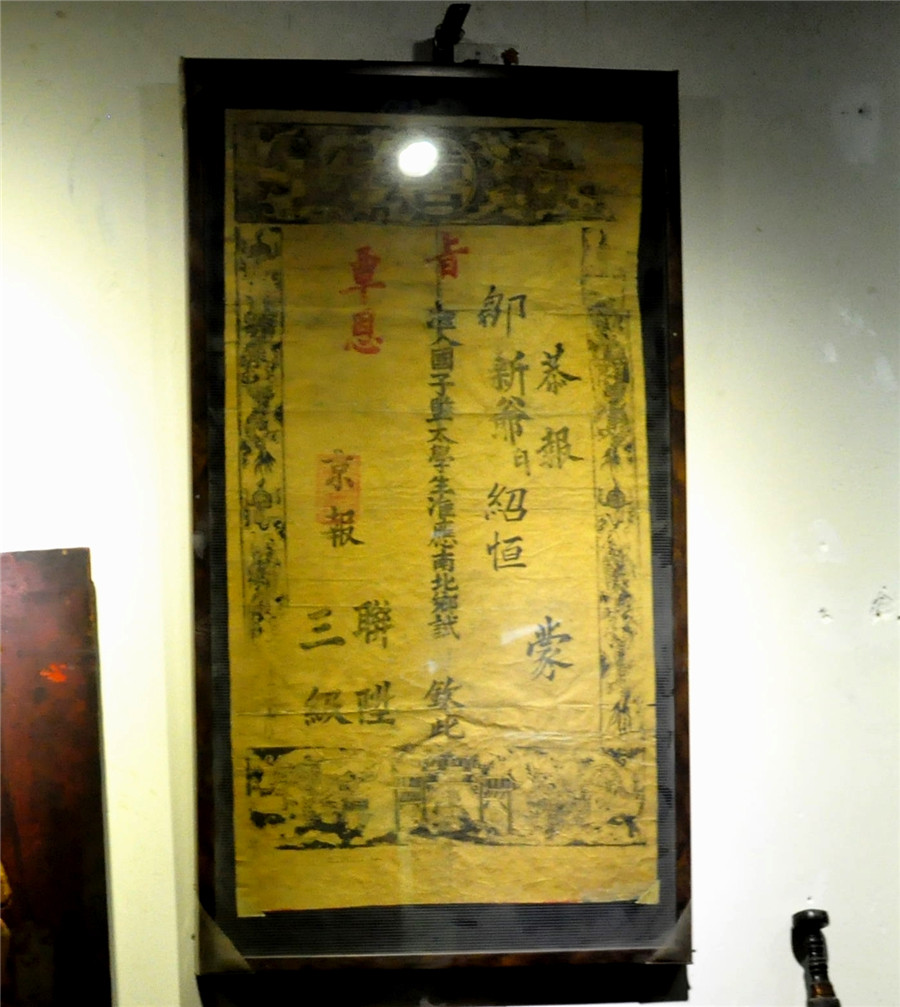 恭報 蒙
新爺日紹恒
旨 准入國子監太學生准應南北鄉試 欽此
覃恩
京報
聯陞
三級